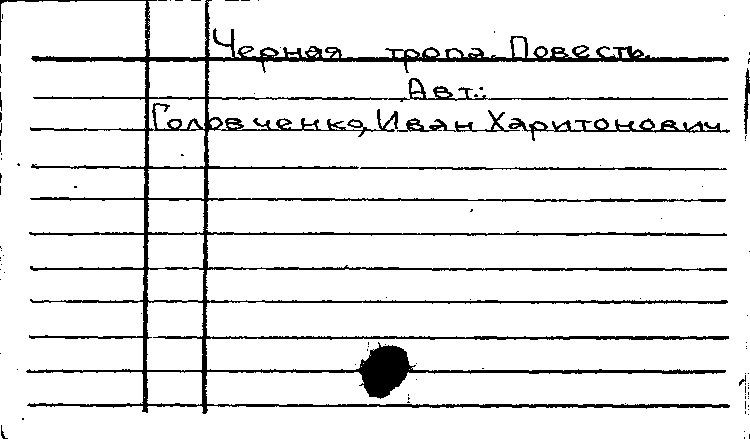 Черная тропа. Повесть
Авт.:
Головченко, Иван Харитонович